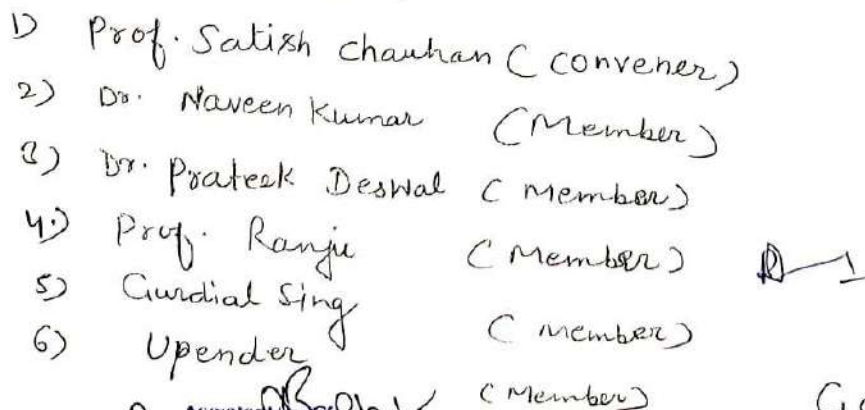 1) Prof. Satish Chauhan (Convener)
2) Dr. Naveen Kumar (Member)
3) Dr. Prateek Deswal (Member)
4) Prof. Ranju (Member)
5) Gurdial Sing (Member)
6) Upender (Member)